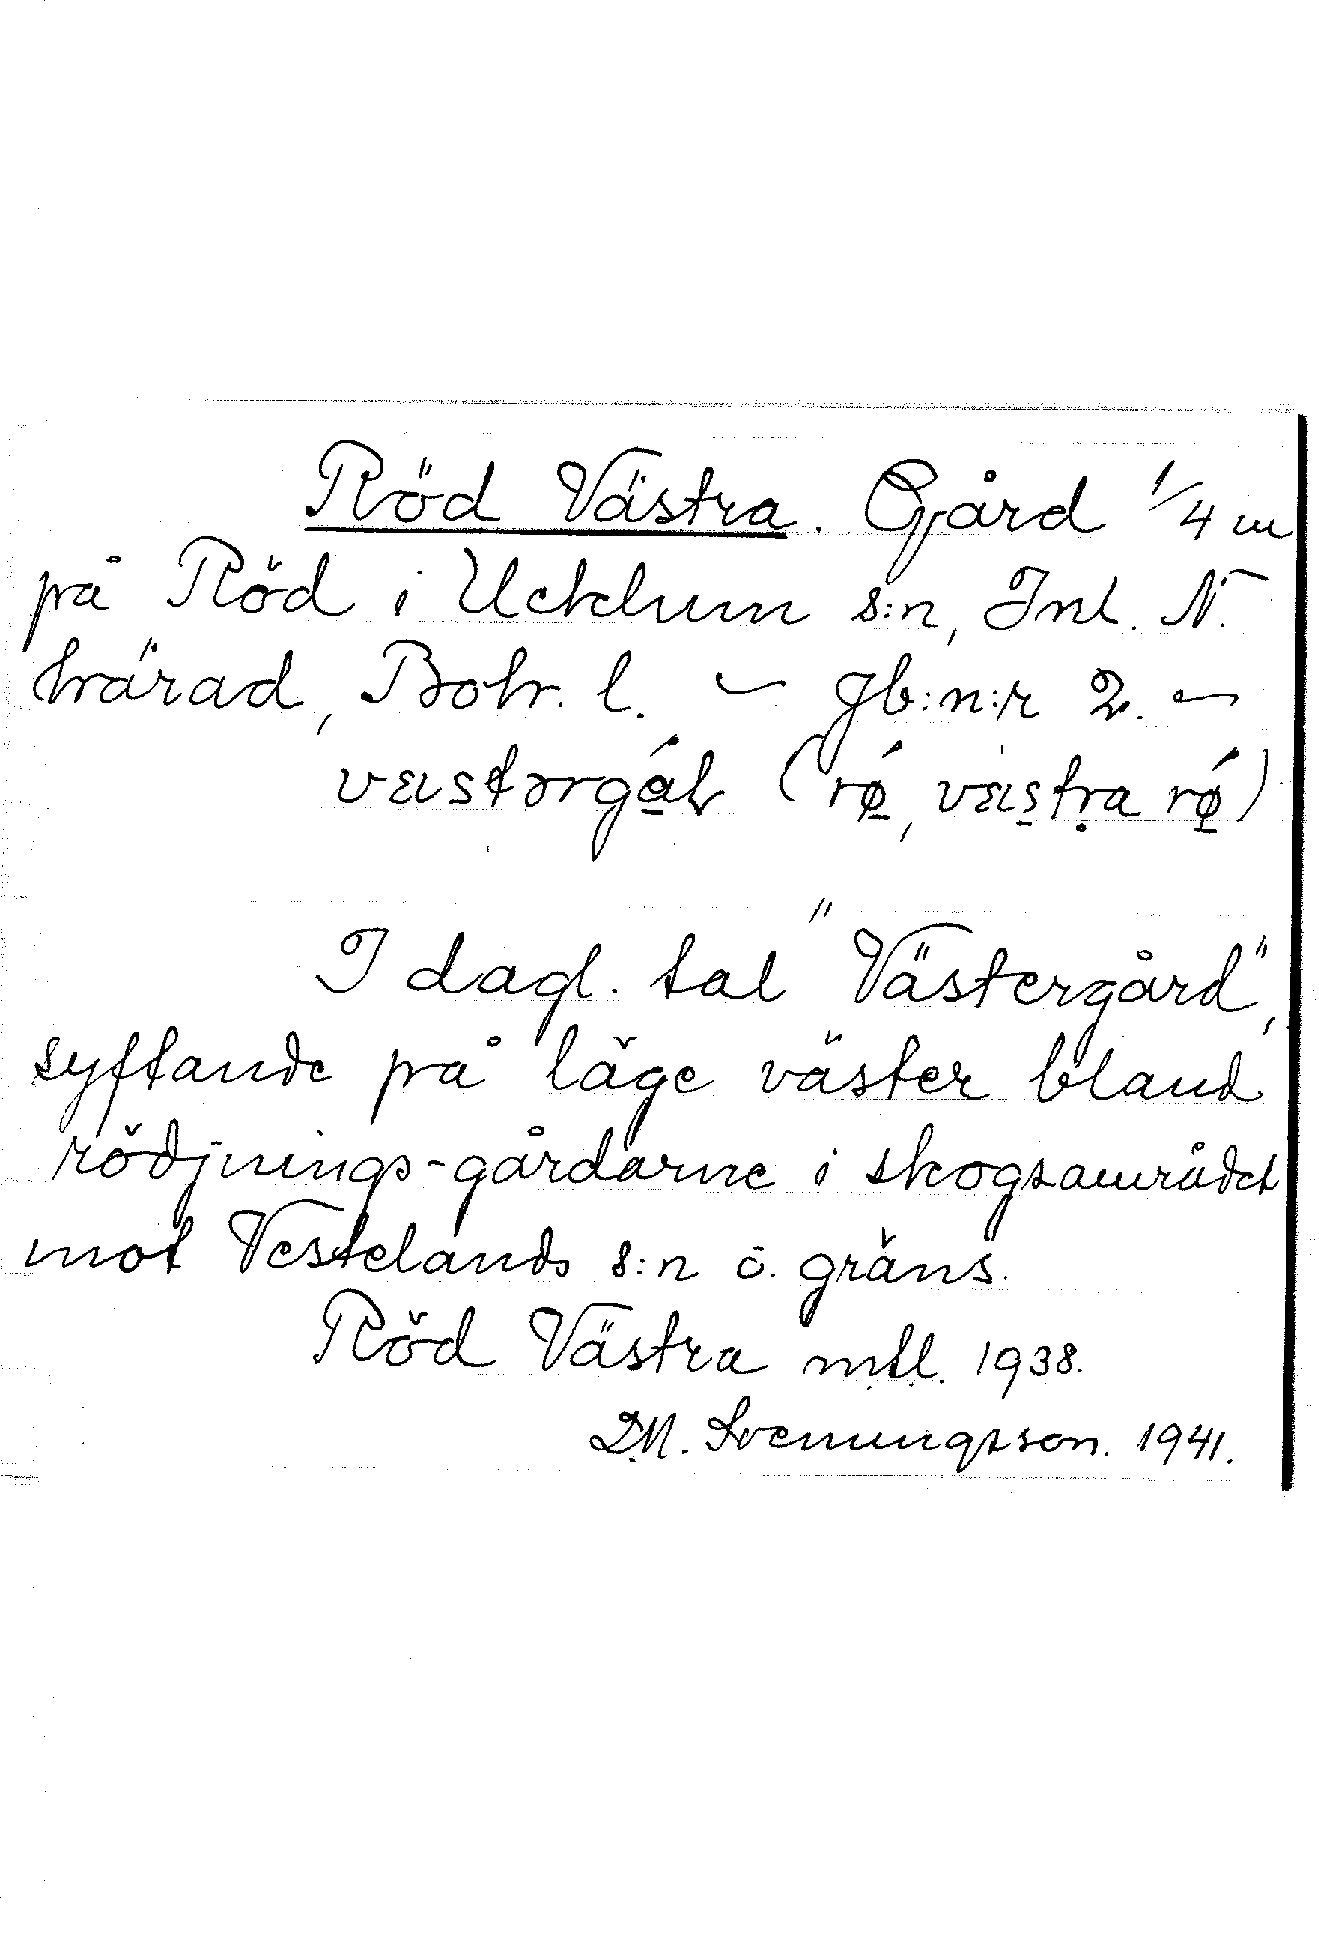 Röd Västra. Gård 1/4 m
på Röd i Ucklum s:n, Inl. N.
härad, Boh. l. – Jb:n:r 2. –
(rǿ, västra rǿ)
I dagl. tal "Västergård",
syftande på läge väster bland
rödjnings-gårdarne i skogsområdet
mot Vestelands s:n ö. gräns.
Röd Västra mtl. 1938.
D.M. Svenungsson. 1941.